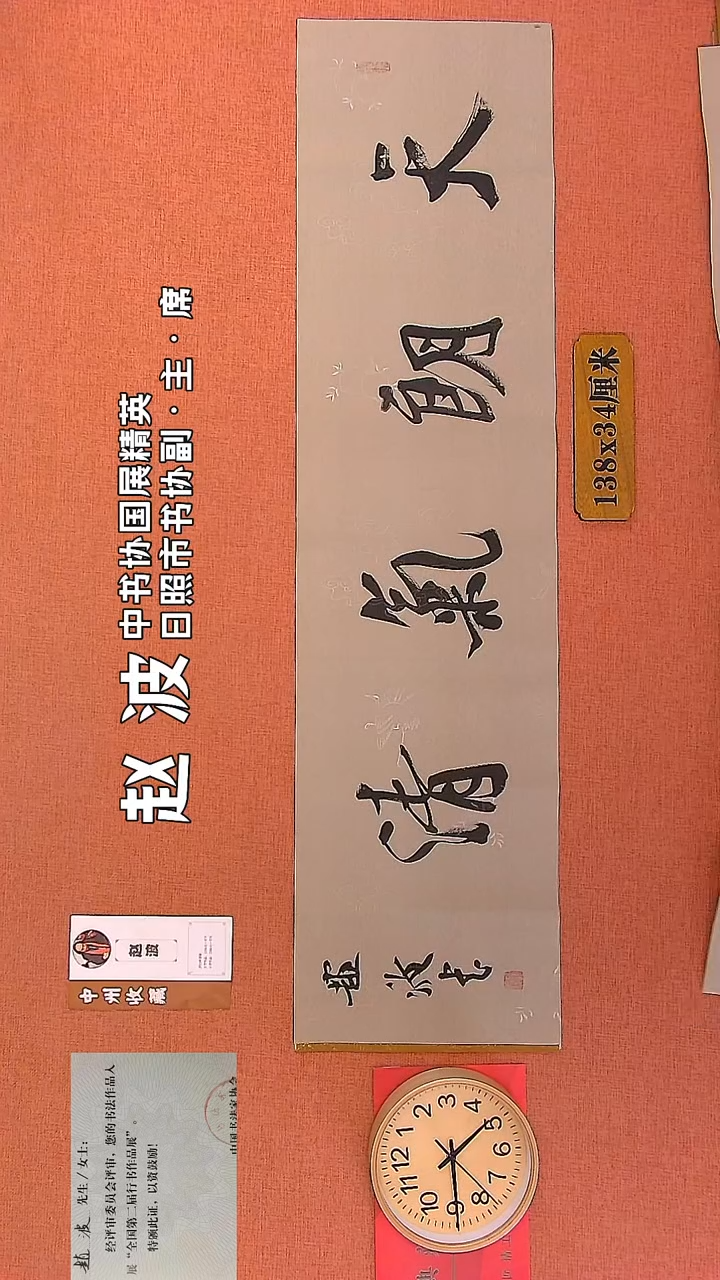 赵波
中书协国展精英
日照市书协副·主·席
赵波
中州收藏
赵波 先生/女士：
经评审委员会评审，您的书法作品入
展“全国第二届行书作品展”。
特颁此证，以资鼓励！
中国书法家协会
天朗氣清
趙波書
138x34厘米
12
1
2
3
4
5
6
7
8
9
10
11